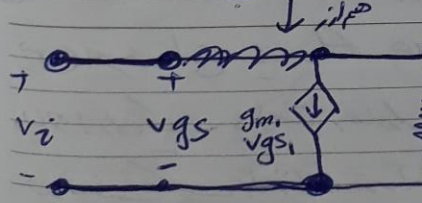 + +
vi vgs gm1
vgs1
- -